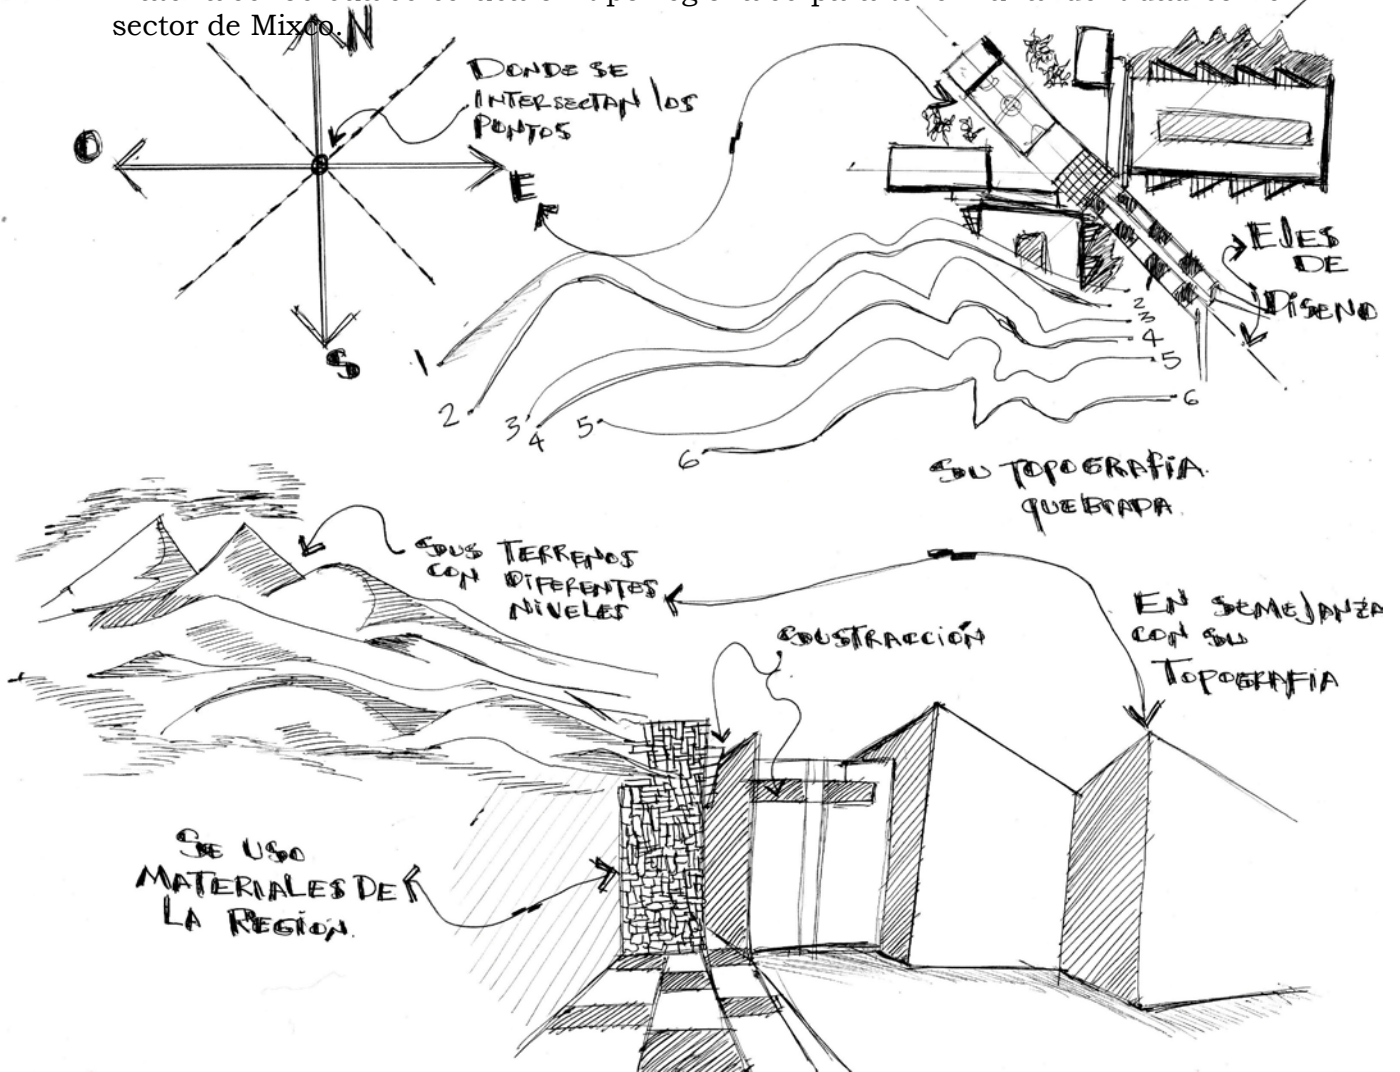 sector de Mixco.
N
DONDE SE
INTERSECTAN LOS
PUNTOS
O
E
S
EJES
DE
DISEÑO
1
2
3
4
5
6
2
3
4
5
6
SU TOPOGRAFIA
QUEBRADA
SUS TERRENOS
CON DIFERENTES
NIVELES
EN SEMEJANZA
CON SU
TOPOGRAFIA
SUSTRACCIÓN
SE USO
MATERIALES DE
LA REGIÓN.